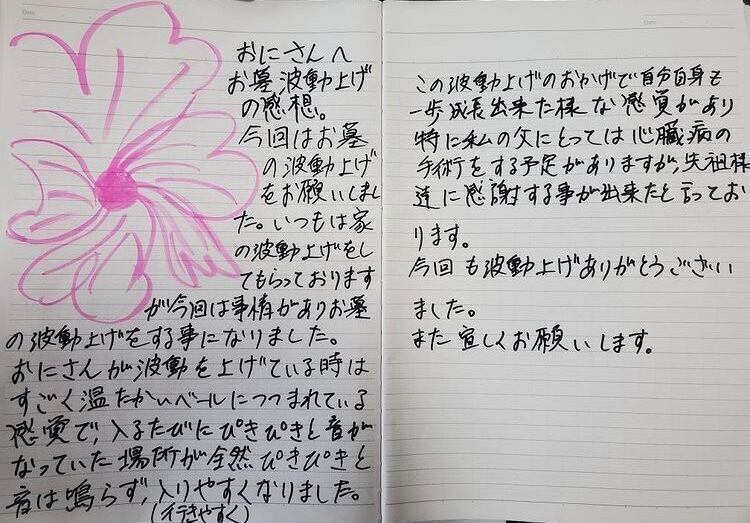 Date
おにさんへ
お墓波動上げ
の感想。
今回はお墓
の波動上げ
をお願いしまし
た。いつもは家
の波動上げをし
てもらっております
が今回は事情がありお墓
の波動上げをする事になりました。
おにさんが波動を上げている時は
すごく温たかいベールにつつまれている
感覚で、入るたびにぴきぴきと音が
なっていた場所が全然ぴきぴきと
音は鳴らず、入りやすくなりました。
(行きやすく)
Date
この波動上げのおかげで自分自身も
一歩成長出来た様な感覚があり
特に私の父にとっては心臓病の
手術をする予定がありますが、先祖様
達に感謝する事が出来たと言ってお
ります。
今回も波動上げありがとうござい
ました。
また宜しくお願いします。